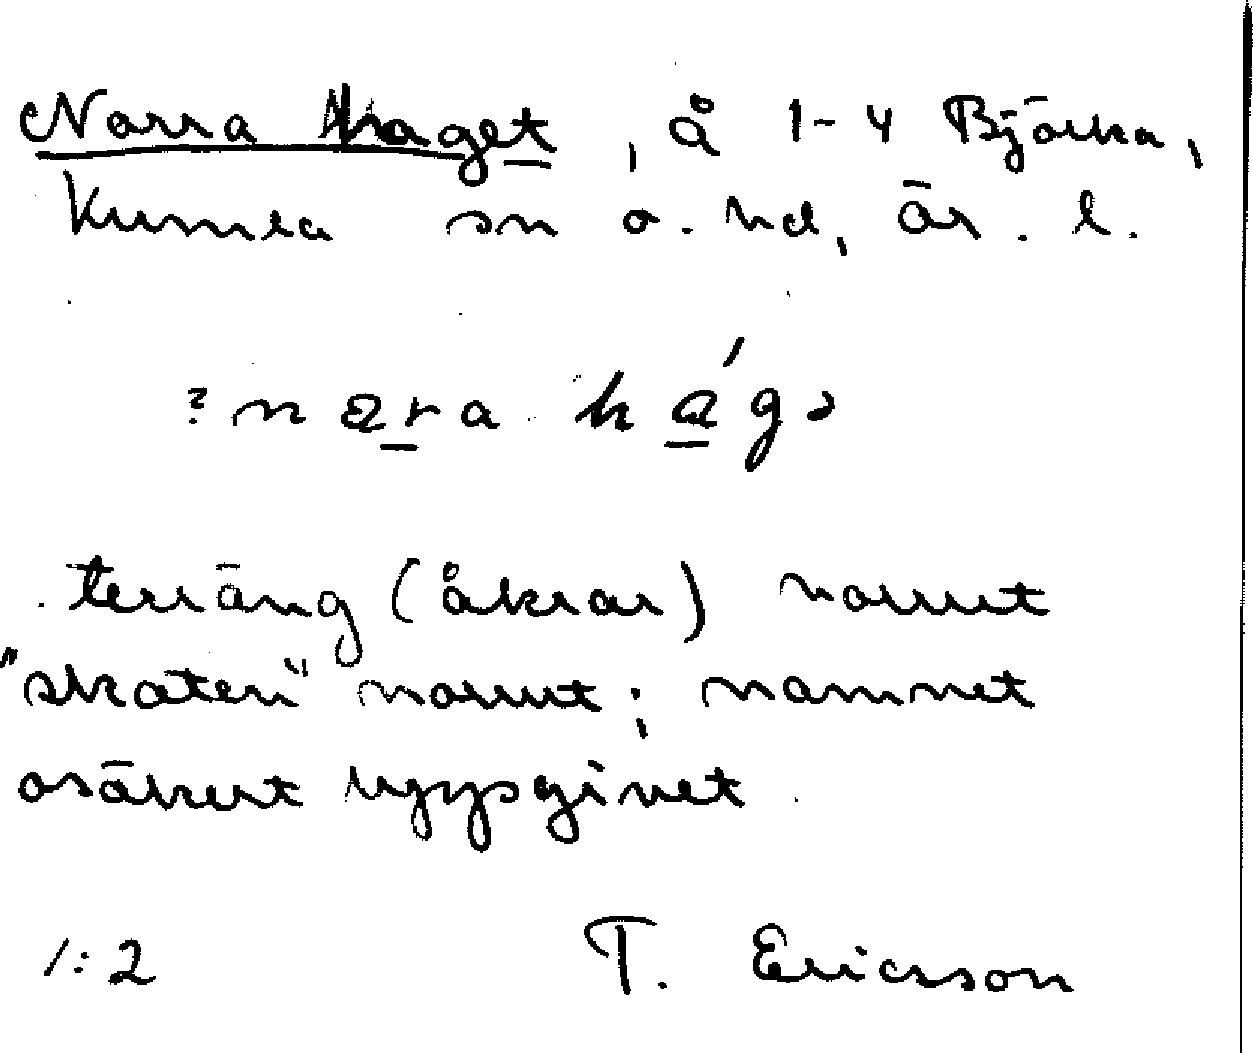 Norra Haget, å 1-4 Björka,
Kumla sn o. hd, Ör. l.
? nara hág
terräng (åkrar) norrut
"skaten" norrut; namnet
osäkert uppgivet
1:2 T. Ericsson